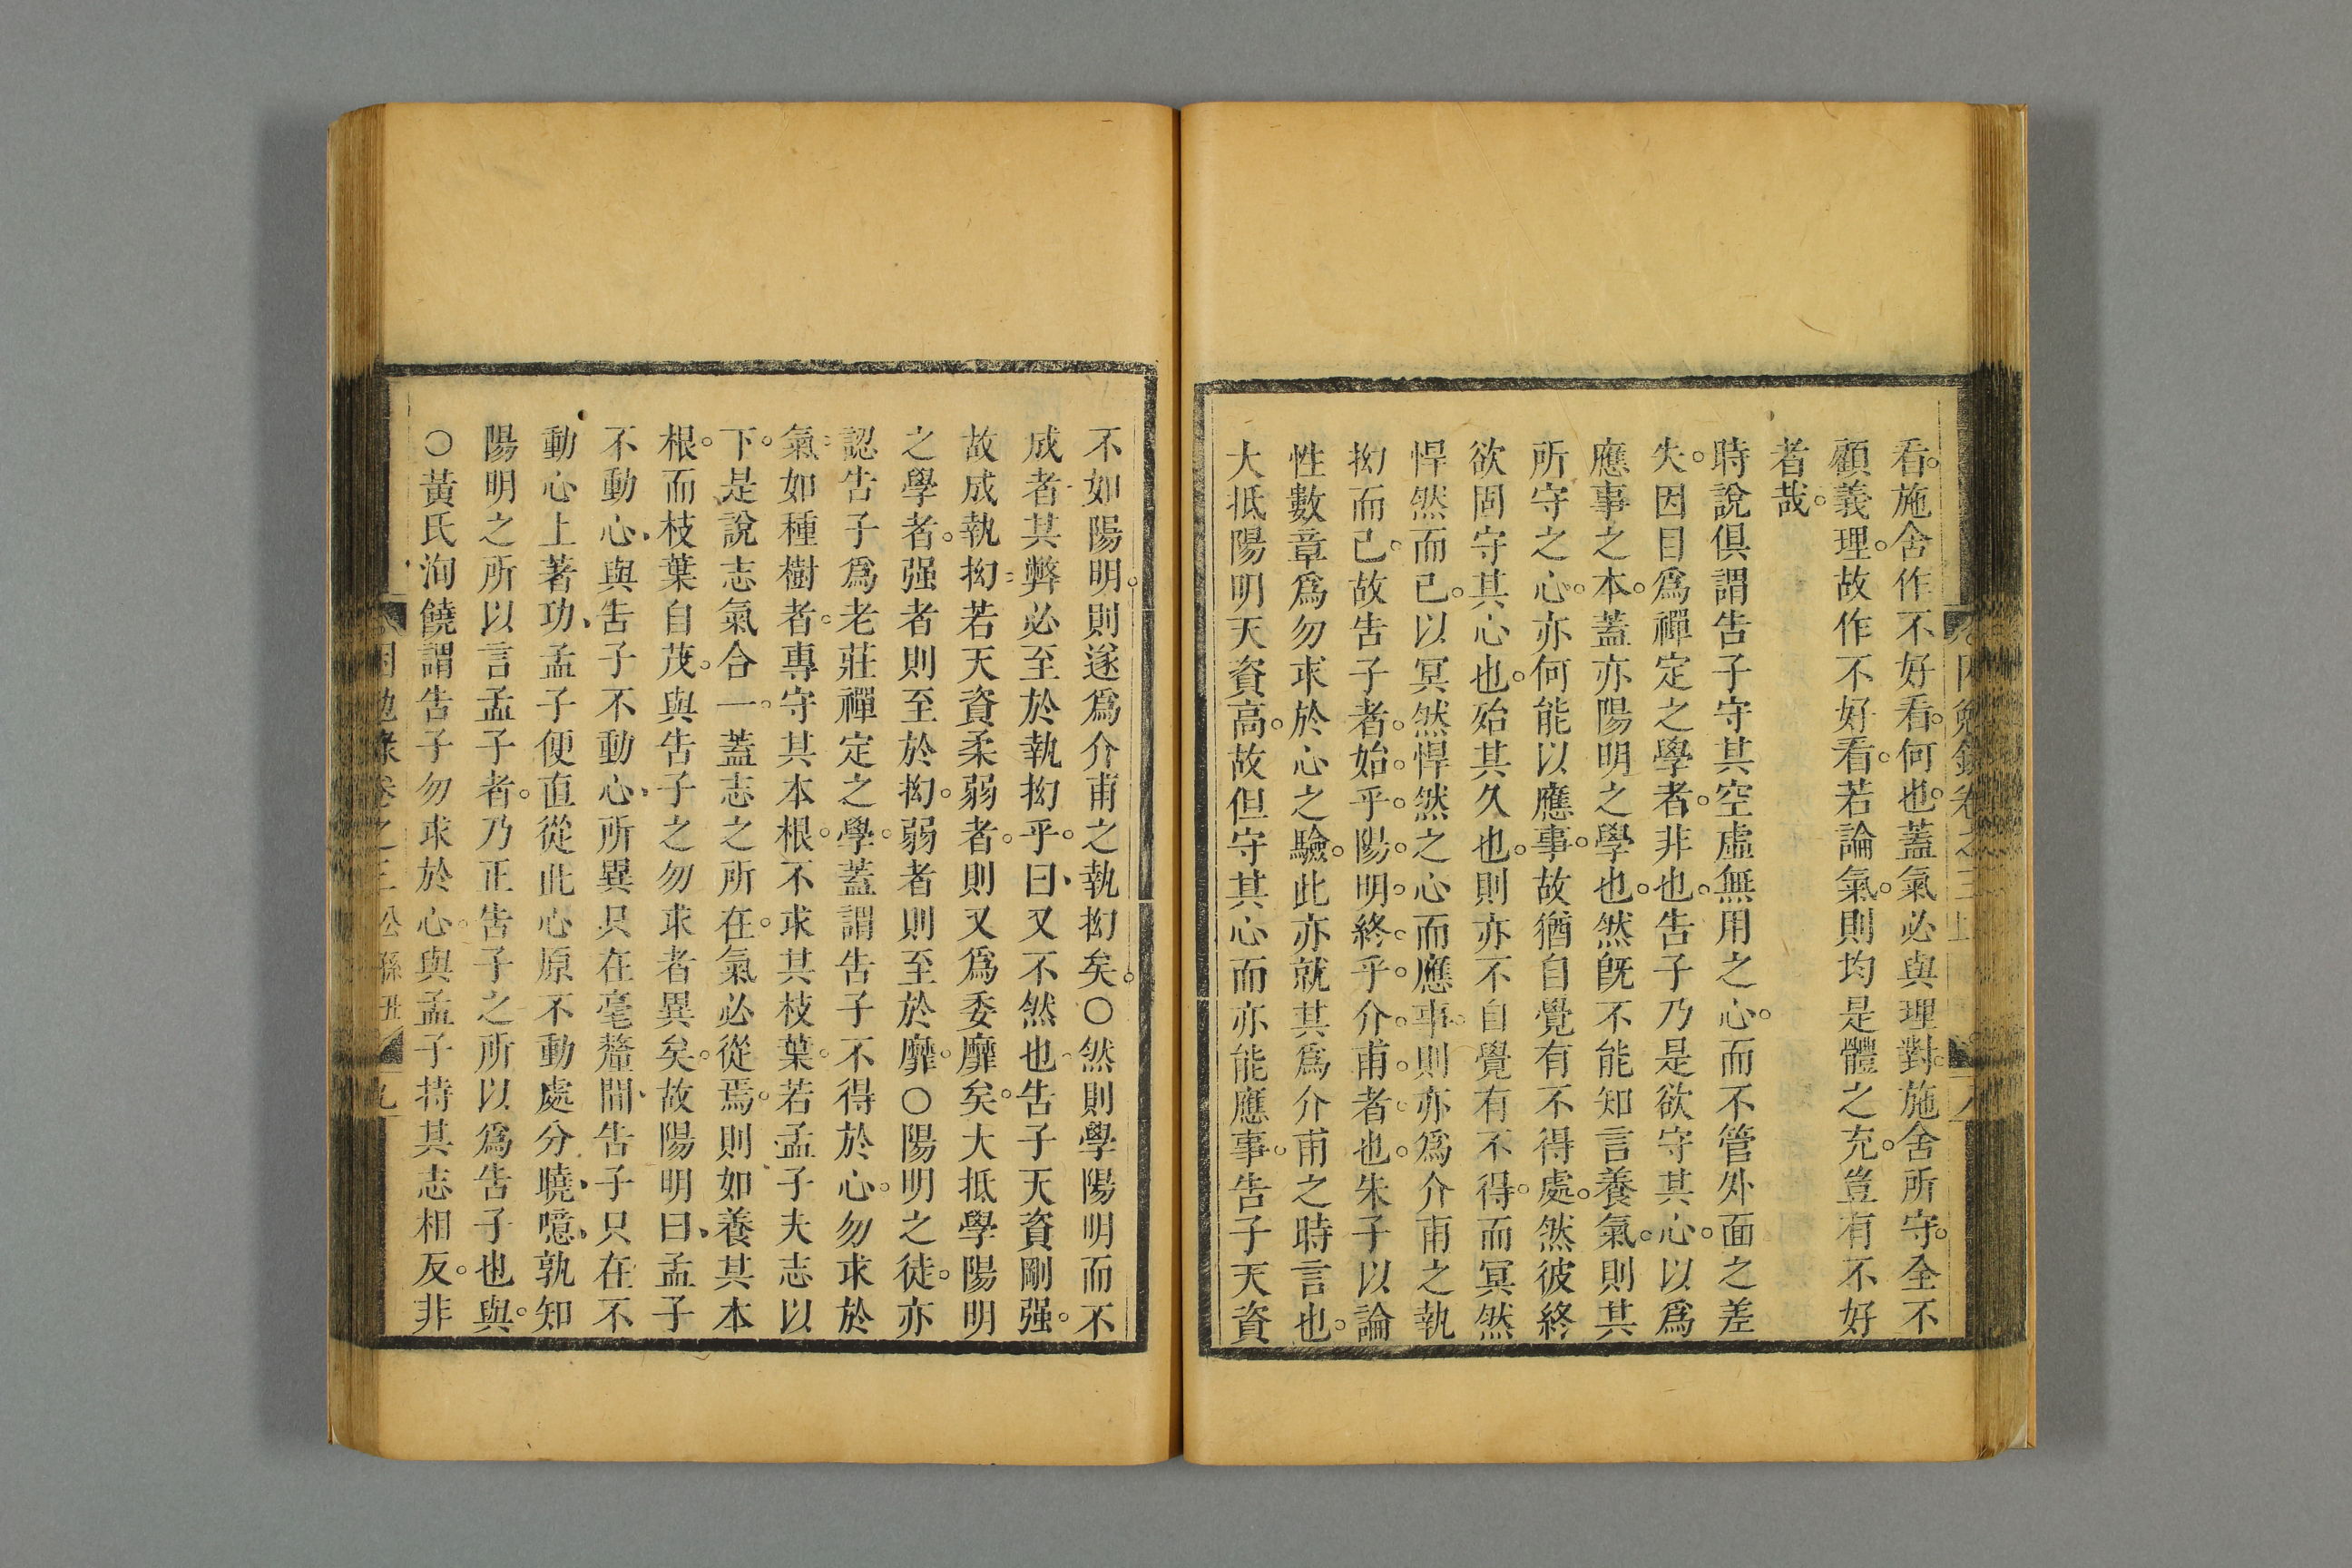 看施舍作不好看何也蓋氣必與理對施舍所守全不
顧義理故作不好看若論氣則均是體之充豈有不好
者哉
時說俱謂告子守其空虛無用之心而不管外面之差
失因目爲禪定之學者非也告子乃是欲守其心以爲
應事之本蓋亦陽明之學也然旣不能知言養氣則其
所守之心亦何能以應事故猶自覺有不得處然彼終
欲固守其心也殆其久也則亦不自覺有不得而冥然
悍然而已以冥然悍然之心而應事則亦爲介甫之執
拗而已故告子者始乎陽明終乎介甫者也朱子以論
性數章爲勿求於心之驗此亦就其爲介甫之時言也
大抵陽明天資高故但守其心而亦能應事告子天資
不如陽明則遂爲介甫之執拗矣○然則學陽明而不
成者其弊必至於執拗乎曰又不然也告子天資剛强
故成執拗若天資柔弱者則又爲委靡矣大抵學陽明
之學者强者則至於拗弱者則至於靡○陽明之徒亦
認告子爲老莊禪定之學蓋謂告子不得於心勿求於
氣如種樹者專守其本根不求其枝葉若孟子夫志以
下是說志氣合一蓋志之所在氣必從焉則如養其本
根而枝葉自茂與告子之勿求者異矣故陽明曰孟子
不動心與告子不動心所異只在毫釐間告子只在不
動心上著功孟子便直從此心原不動處分曉噫孰知
陽明之所以言孟子者乃正告子之所以爲告子也與
○黃氏洵饒謂告子勿求於心與孟子持其志相反非
困勉錄卷之三 公孫丑 九